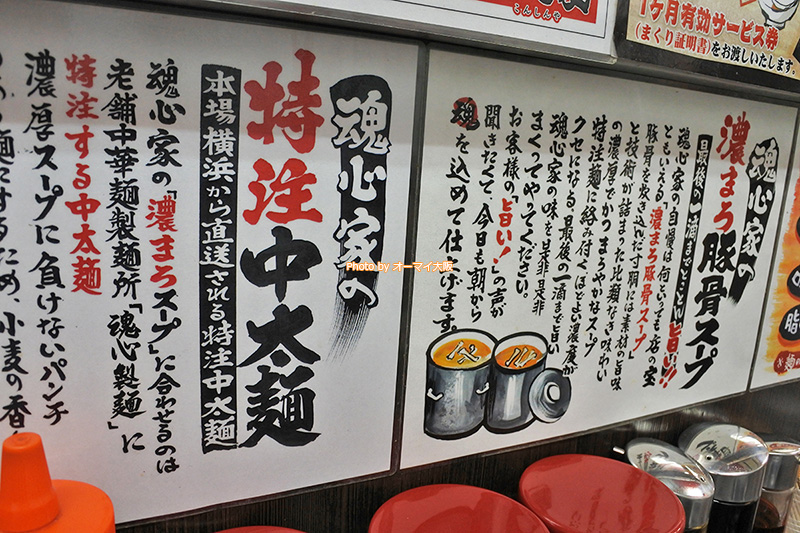 こんしんや
1ヶ月有効サービス券
(まくり証明書)をお渡しいたします。
魂心家の
濃まろ豚骨スープ
最後の一滴までとことん旨い!!
魂心家の自慢は何といっても店の宝
ともいえる「濃まろ豚骨スープ」
豚骨を炊き込んだ寸胴には素材の旨味
と技術が詰まった比類なき味わい
の濃厚でかつまろやかなスープ
特注麺に絡み付くほどよい濃度が
クセになる、最後の一滴まで旨い
魂心家の味を是非是非
まくってやってください。
お客様の「旨い!」の声が
聞きたくて、今日も朝から
魂を込めて仕上げます。
魂心家の
特注中太麺
本場横浜から直送される特注中太麺
魂心家の「濃まろスープ」に合わせるのは
老舗中華麺製麺所「魂心製麺」に
特注する中太麺
濃厚スープに負けないパンチ
麺にするため、小麦の香
脂
麺
Photo by オーマイ大阪